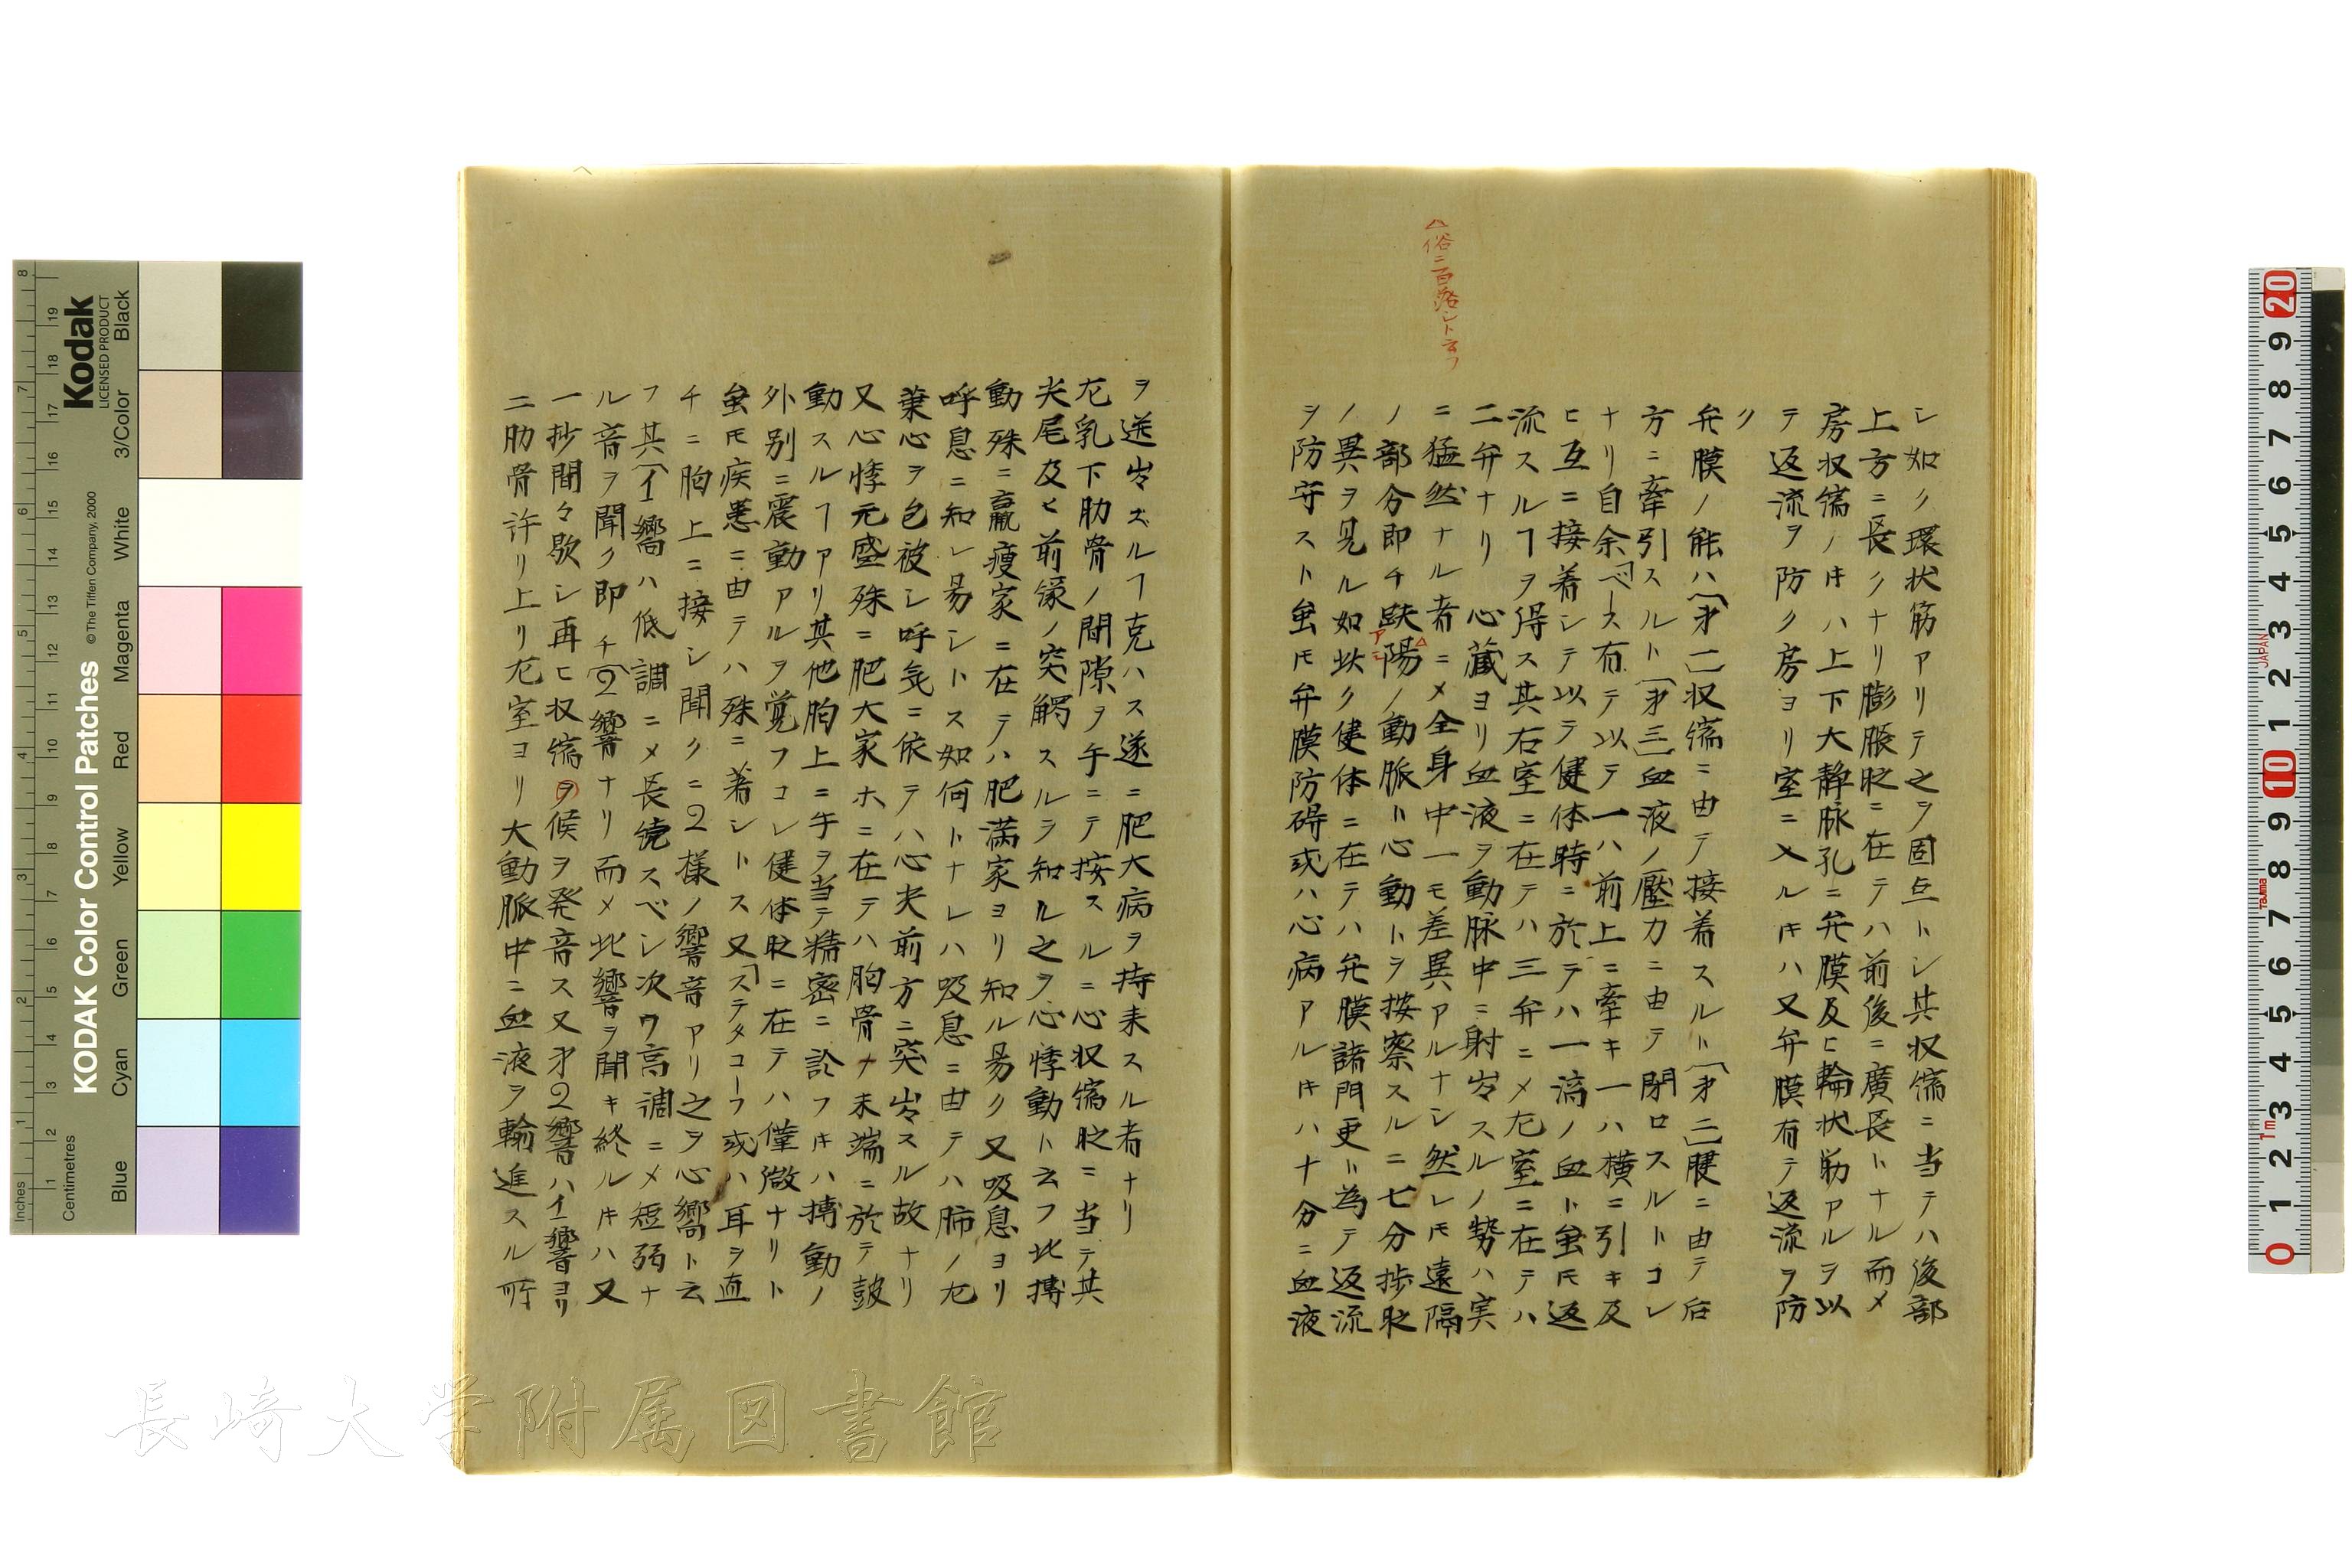 シ如ク環状筋アリテ之ヲ固点トシ其収縮ニ当テハ後部
上方ニ長クナリ膨脹時ニ在テハ前後ニ廣長トナル而メ
房収縮ノ𪜈ハ上下大静脉孔ニ弁膜及ヒ輪状筋アルヲ以
テ返流ヲ防ク房ヨリ室ニ入ル𪜈ハ又弁膜有テ返流ヲ防
ク
弁膜ノ能ハ「才一」収縮ニ由テ接着スルト「才二」腱ニ由テ后
方ニ牽引スルト「才三」血液ノ壓力ニ由テ閉ロスルトコレ
ナリ自余「ベース有テ以テ一ハ前上ニ牽キ一ハ横ニ引キ及
ヒ互ニ接着シテ以テ健体時ニ於テハ一滴ノ血ト虽𪜈返
流スルヿヲ得ス其右室ニ在テハ三弁ニメ左室ニ在テハ
二弁ナリ 心蔵ヨリ血液ヲ動脉中ニ射出スルノ勢ハ実
ニ猛然ナル者ニメ全身中一モ差異アルナシ然レ𪜈遠隔
ノ部分即チ趺陽ノ動脈ト心動トヲ按察スルニ七分抄時
ノ異ヲ見ル如此ク健体ニ在テハ弁膜諸門更ト為テ返流
ヲ防守スト虽𪜈弁膜防碍或ハ心病アル𪜈ハ十分ニ血液
△俗ニ百落シト云フ
アシ
ヲ送出ズルヿ克ハス遂ニ肥大病ヲ持来スル者ナリ
左乳下肋骨ノ間隙ヲ手ニテ按スルニ心収縮時ニ当テ其
尖尾及ヒ前縁ノ突觸スルヲ知ル之ヲ心悸動ト云フ此搏
動殊ニ羸痩家ニ在テハ肥満家ヨリ知ル易ク又吸息ヨリ
呼息ニ知レ易シトス如何トナレハ吸息ニ由テハ肺ノ左
葉心ヲ包被シ呼気ニ依テハ心夫前方ニ突出スル故ナリ
又心悸亢盛殊ニ肥大家ホニ在テハ胸骨ノ末端ニ於テ鼓
動スルヿアリ其他胸上ニ手ヲ当テ精密ニ診フ𪜈ハ搏動ノ
外別ニ震動アルヲ覚フコレ健体時ニ在テハ僅微ナリト
虽𪜈疾患ニ由テハ殊ニ著シトス又「ステタコーフ或ハ耳ヲ直
チニ胸上ニ接シ聞クニ2様ノ響音アリ之ヲ心響ト云
フ其「イ響ハ低調ニメ長続スベシ次ワ高調ニメ短弱ナ
ル音ヲ聞ク即チ「2響ナリ而メ此響ヲ聞キ終ル𪜈ハ又
一抄間々歇シ再ヒ収縮ヲ候ヲ発音ス又才2響ハイ響ヨリ
二肋骨許リ上リ左室ヨリ大動脈中ニ血液ヲ輸進スル所
長崎大学附属図書館
Kodak
LICENSED PRODUCT
KODAK Color Control Patches
© The Tiffen Company, 2000
Inches
Centimetres
Blue
Cyan
Green
Yellow
Red
Magenta
White
3/Color
Black
JAPAN
Tajima